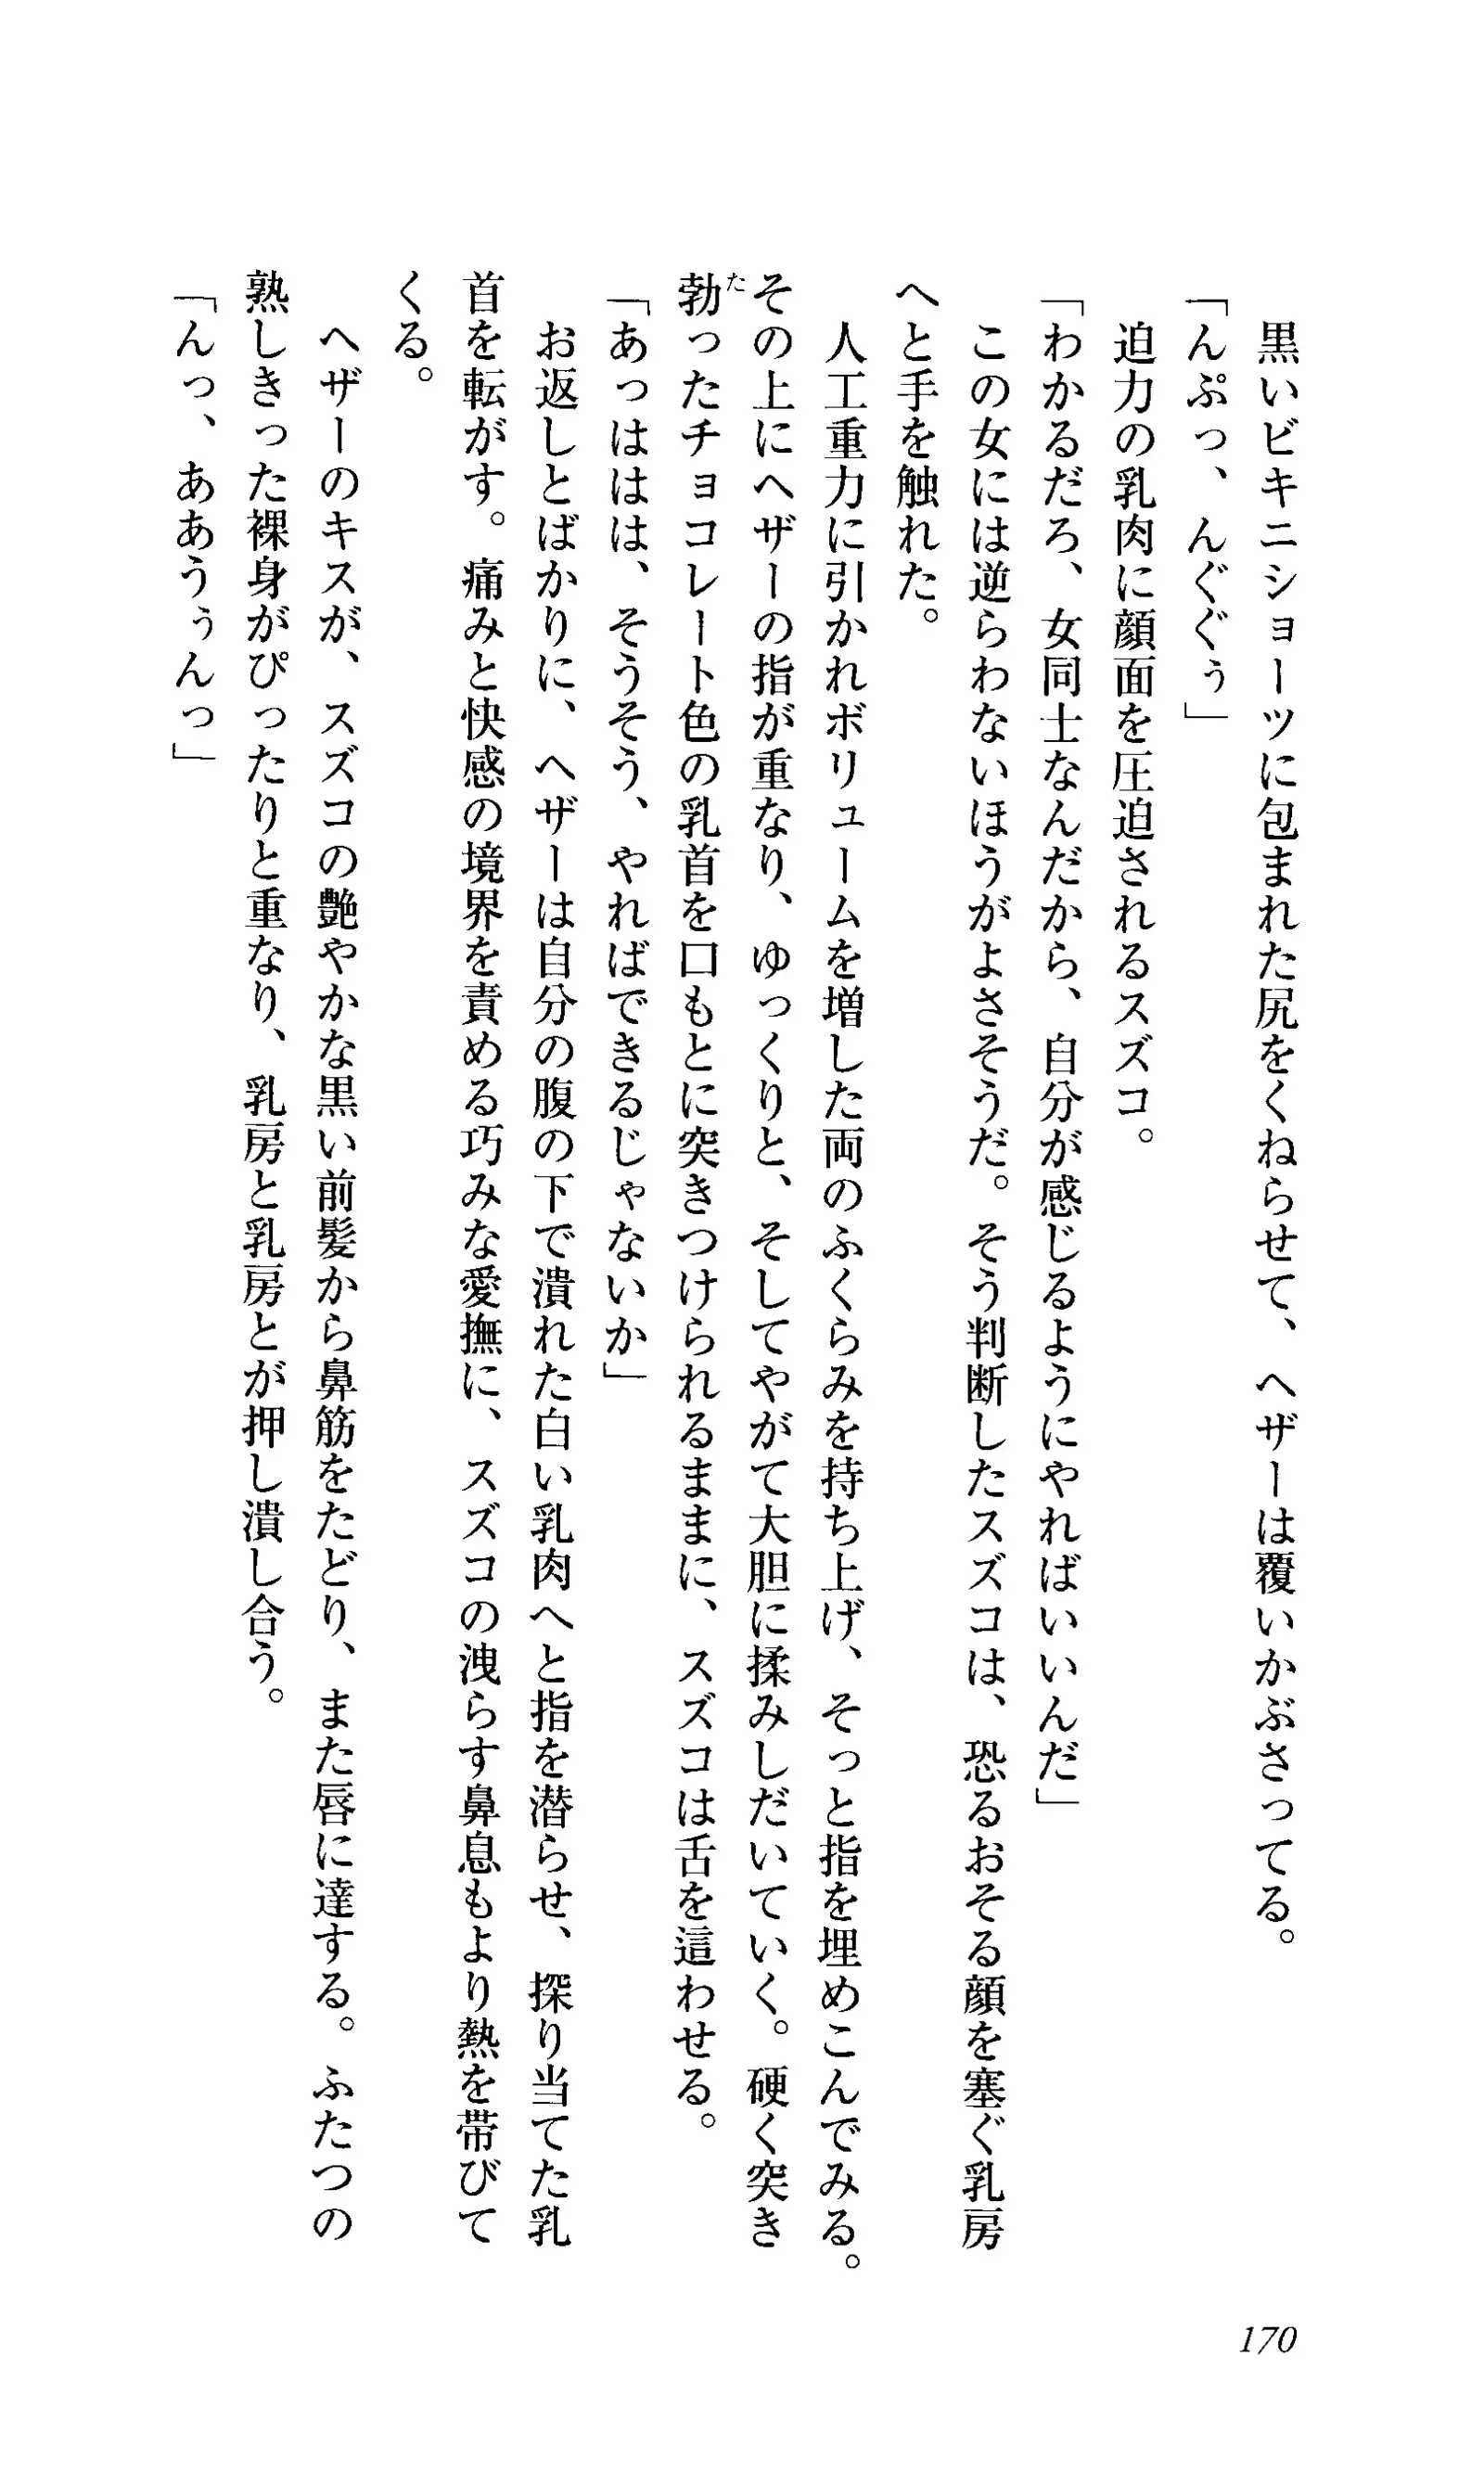 黒いビキニショーツに包まれた尻をくねらせて、ヘザーは覆いかぶさってる。
「んぷっ、んぐぐぅ」
迫力の乳肉に顔面を圧迫されるスズコ。
「わかるだろ、女同士なんだから、自分が感じるようにやればいいんだ」
この女には逆らわないほうがよさそうだ。そう判断したスズコは、恐るおそる顔を塞ぐ乳房
へと手を触れた。
人工重力に引かれボリュームを増した両のふくらみを持ち上げ、そっと指を埋めこんでみる。
その上にヘザーの指が重なり、ゆっくりと、そしてやがて大胆に揉みしだいていく。硬く突き
勃ったチョコレート色の乳首を口もとに突きつけられるままに、スズコは舌を這わせる。
「あっははは、そうそう、やればできるじゃないか」
お返しとばかりに、ヘザーは自分の腹の下で潰れた白い乳肉へと指を潜らせ、探り当てた乳
首を転がす。痛みと快感の境界を責める巧みな愛撫に、スズコの洩らす鼻息もより熱を帯びて
くる。
ヘザーのキスが、スズコの艶やかな黒い前髪から鼻筋をたどり、また唇に達する。ふたつの
熟しきった裸身がぴったりと重なり、乳房と乳房とが押し潰し合う。
「んっ、ああうぅんっ」
170